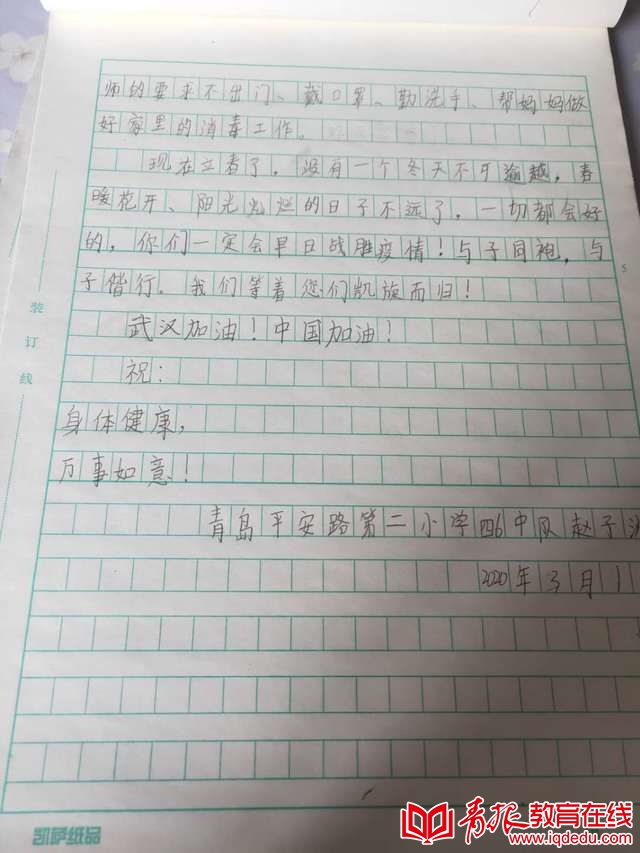 师的要求不出门、戴口罩、勤洗手、帮妈妈做
好家里的消毒工作。
现在立春了，没有一个冬天不可逾越，春
暖花开、阳光灿烂的日子不远了，一切都会好
的，你们一定会早日战胜疫情！与子同袍，与
子偕行。我们等着您们凯旋而归！
武汉加油！中国加油！
祝：
身体健康，
万事如意！
青岛平安路第二小学四6中队赵子
2020年3月1
装订线
5
凯萨纸品
青报教育在线
www.iqdedu.com